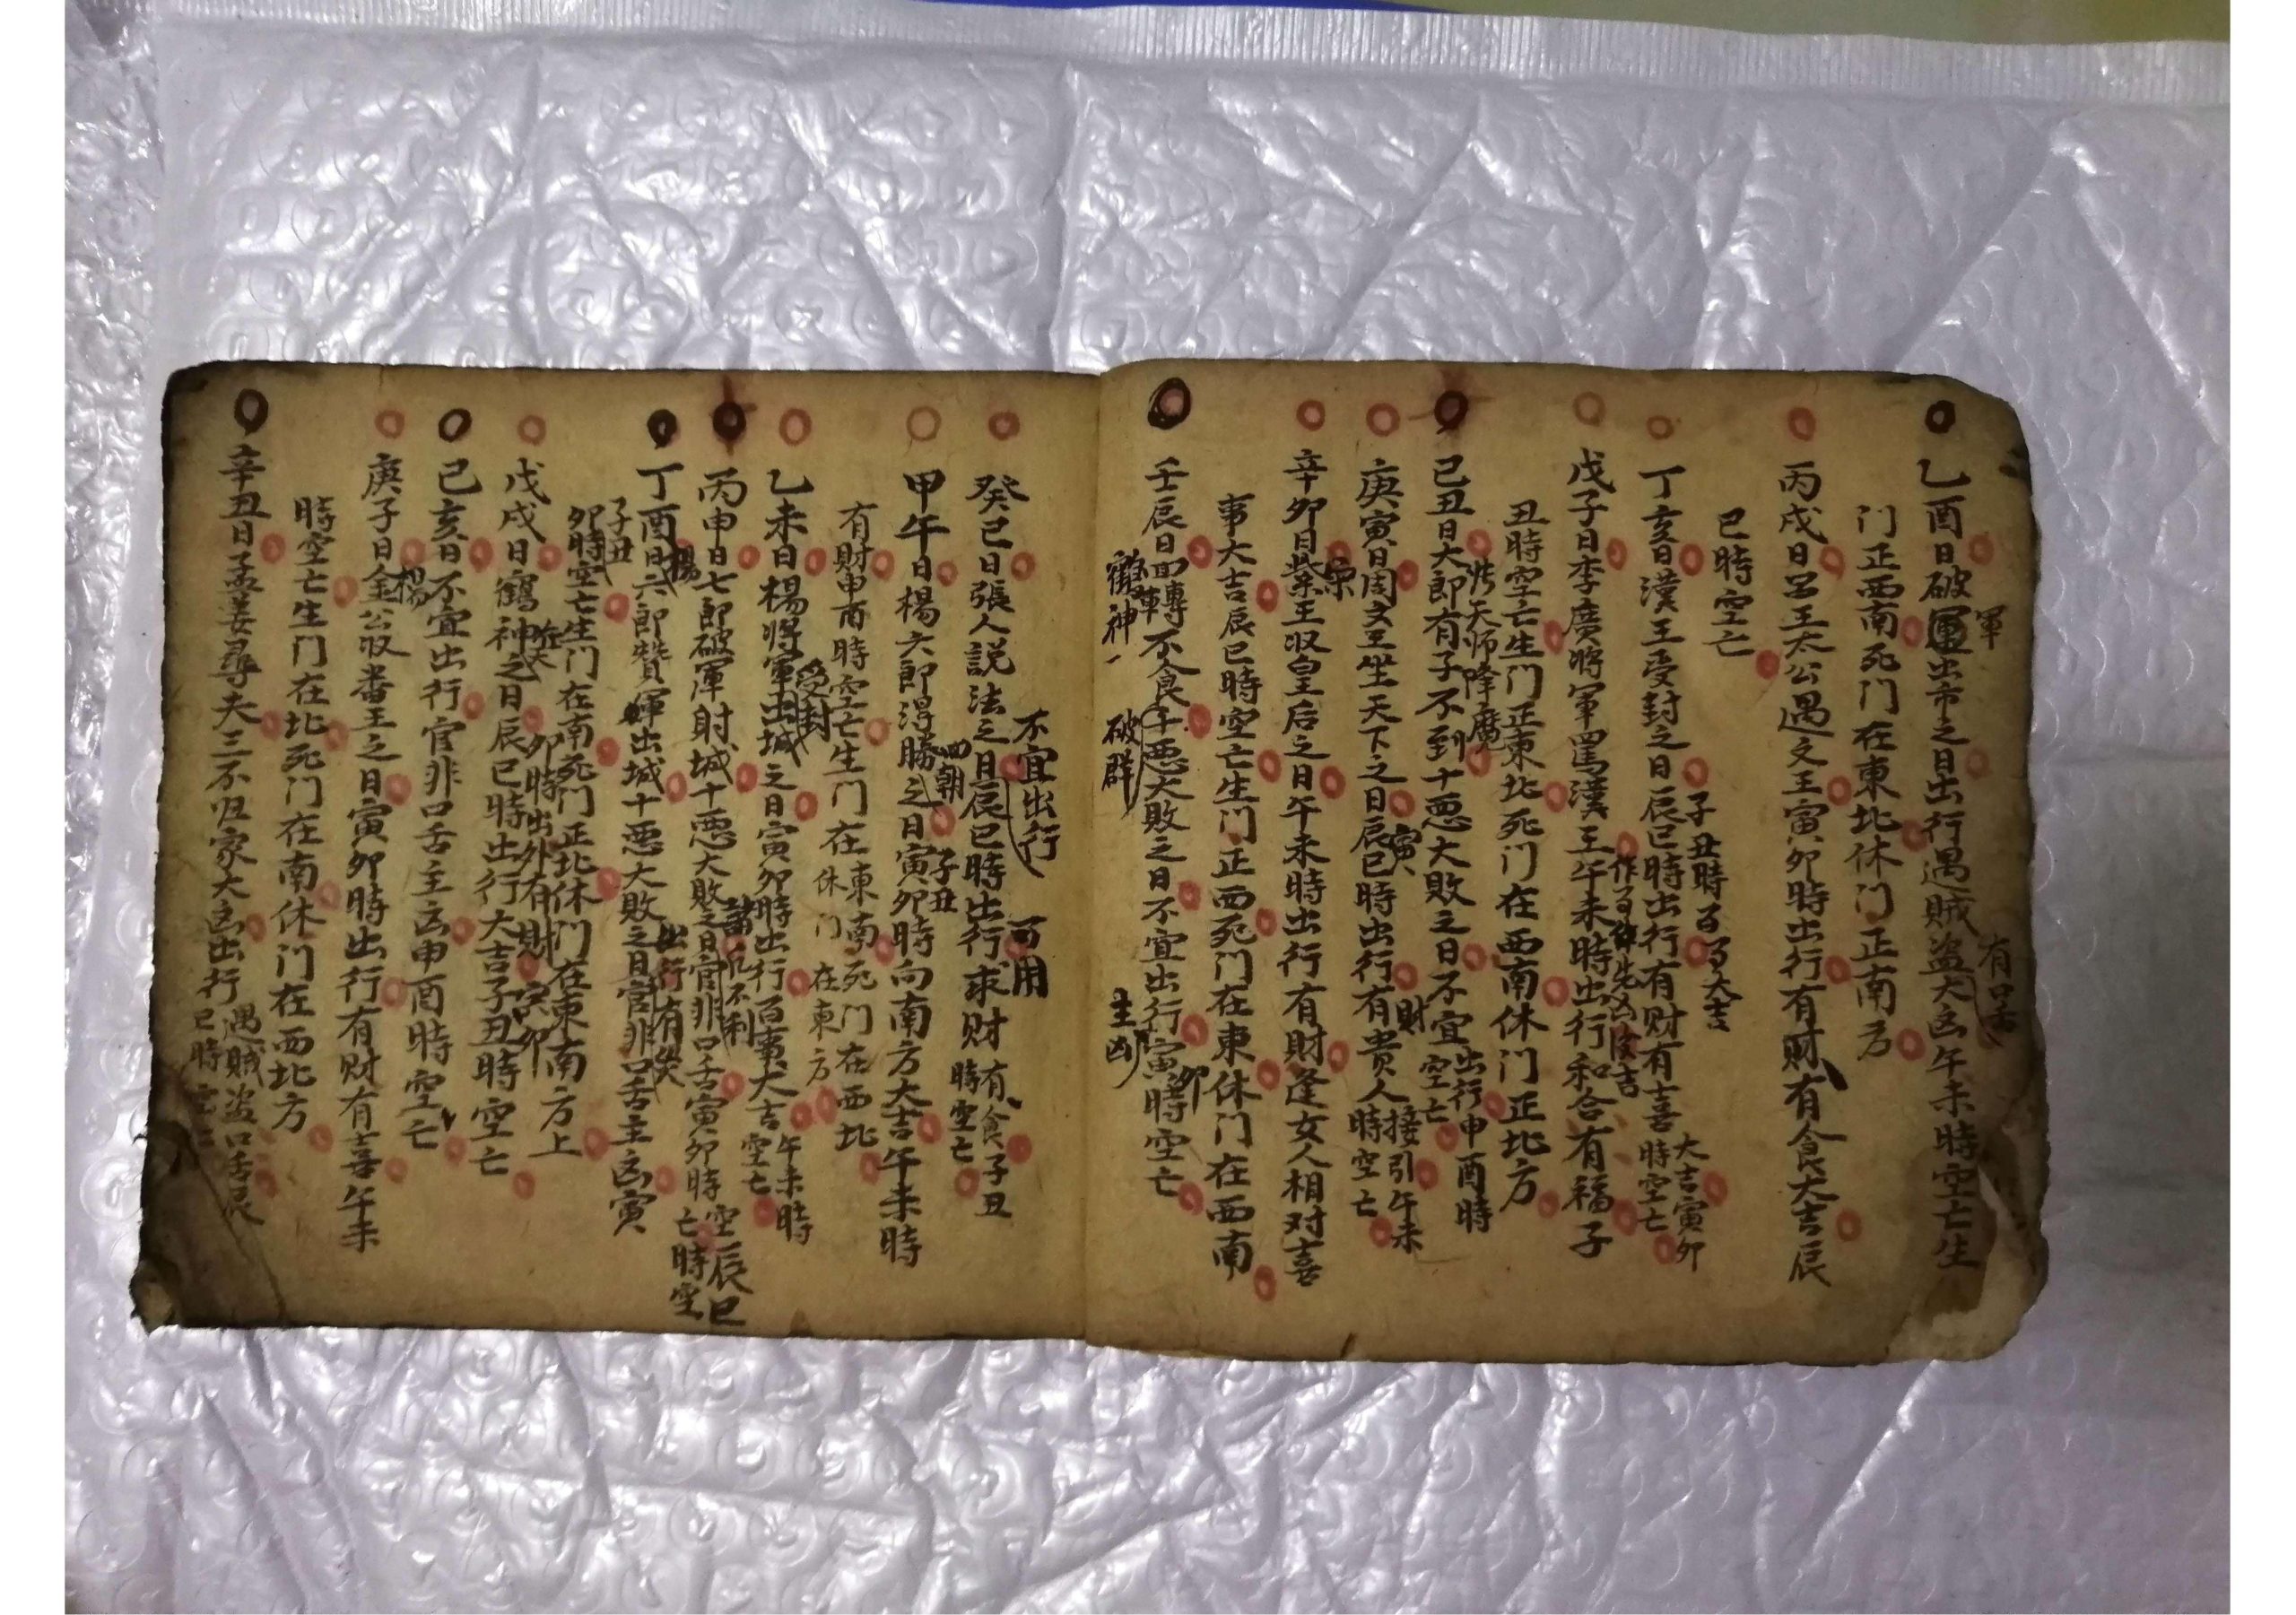 乙酉日破軍出市之日出行遇賊盜大凶午未時空亡生
軍
有口舌
门正西南死门在東北休门正南方
丙戌日呂王太公遇文王寅卯時出行有財有食大吉辰
巳時空亡
子丑時百事大吉
丁亥日漢王受封之日辰巳時出行有财有喜大吉寅卯時空亡
戊子日李廣將軍罵漢王午未時出行和合有福子
丑時空亡生门正東北死门在西南休门正北方
天师降魔
己丑日大郎有子不到十惡大敗之日不宜出行申酉時空亡
寅
財
庚寅日周文王坐天下之日辰巳時出行有贵人接引午未時空亡
辛卯日紫王収皇后之日午未時出行有財逢女人相对喜
事大吉辰巳時空亡生门正西死门在東休门在西南
壬辰日四轉不食十惡大敗之日不宜出行寅時空亡
卯
鶴神
破群
主凶
不宜出行
可用
癸巳日張人説法之日辰巳時出行求财有食子丑時空亡
四朝
子丑
甲午日楊六郎得勝之日寅卯時向南方大吉午未時
有财申酉時空亡生门在東南死门在西北
休门在東方
受封
乙未日楊將軍出城之日寅卯時出行百事大吉午未時空亡
丙申日七郎破渾射城十惡大敗之日官非口舌寅卯時空亡辰巳時空
楊
丁酉日六郎贊輝出城十惡大敗之日官非口舌主凶寅
出行有
子丑
卯時空亡生门在南死门正北休门在東南方上
卯時出外有財
寅卯
戊戌日鶴神之日辰巳時出行大吉子丑時空亡
己亥日不宜出行官非口舌主凶申酉時空亡
楊
庚子日金公収番王之日寅卯時出行有财有喜午未
時空亡生门在北死门在南休门在西北方
辛丑日孟姜尋夫三不归家大凶出行遇賊盜口舌辰巳時空亡